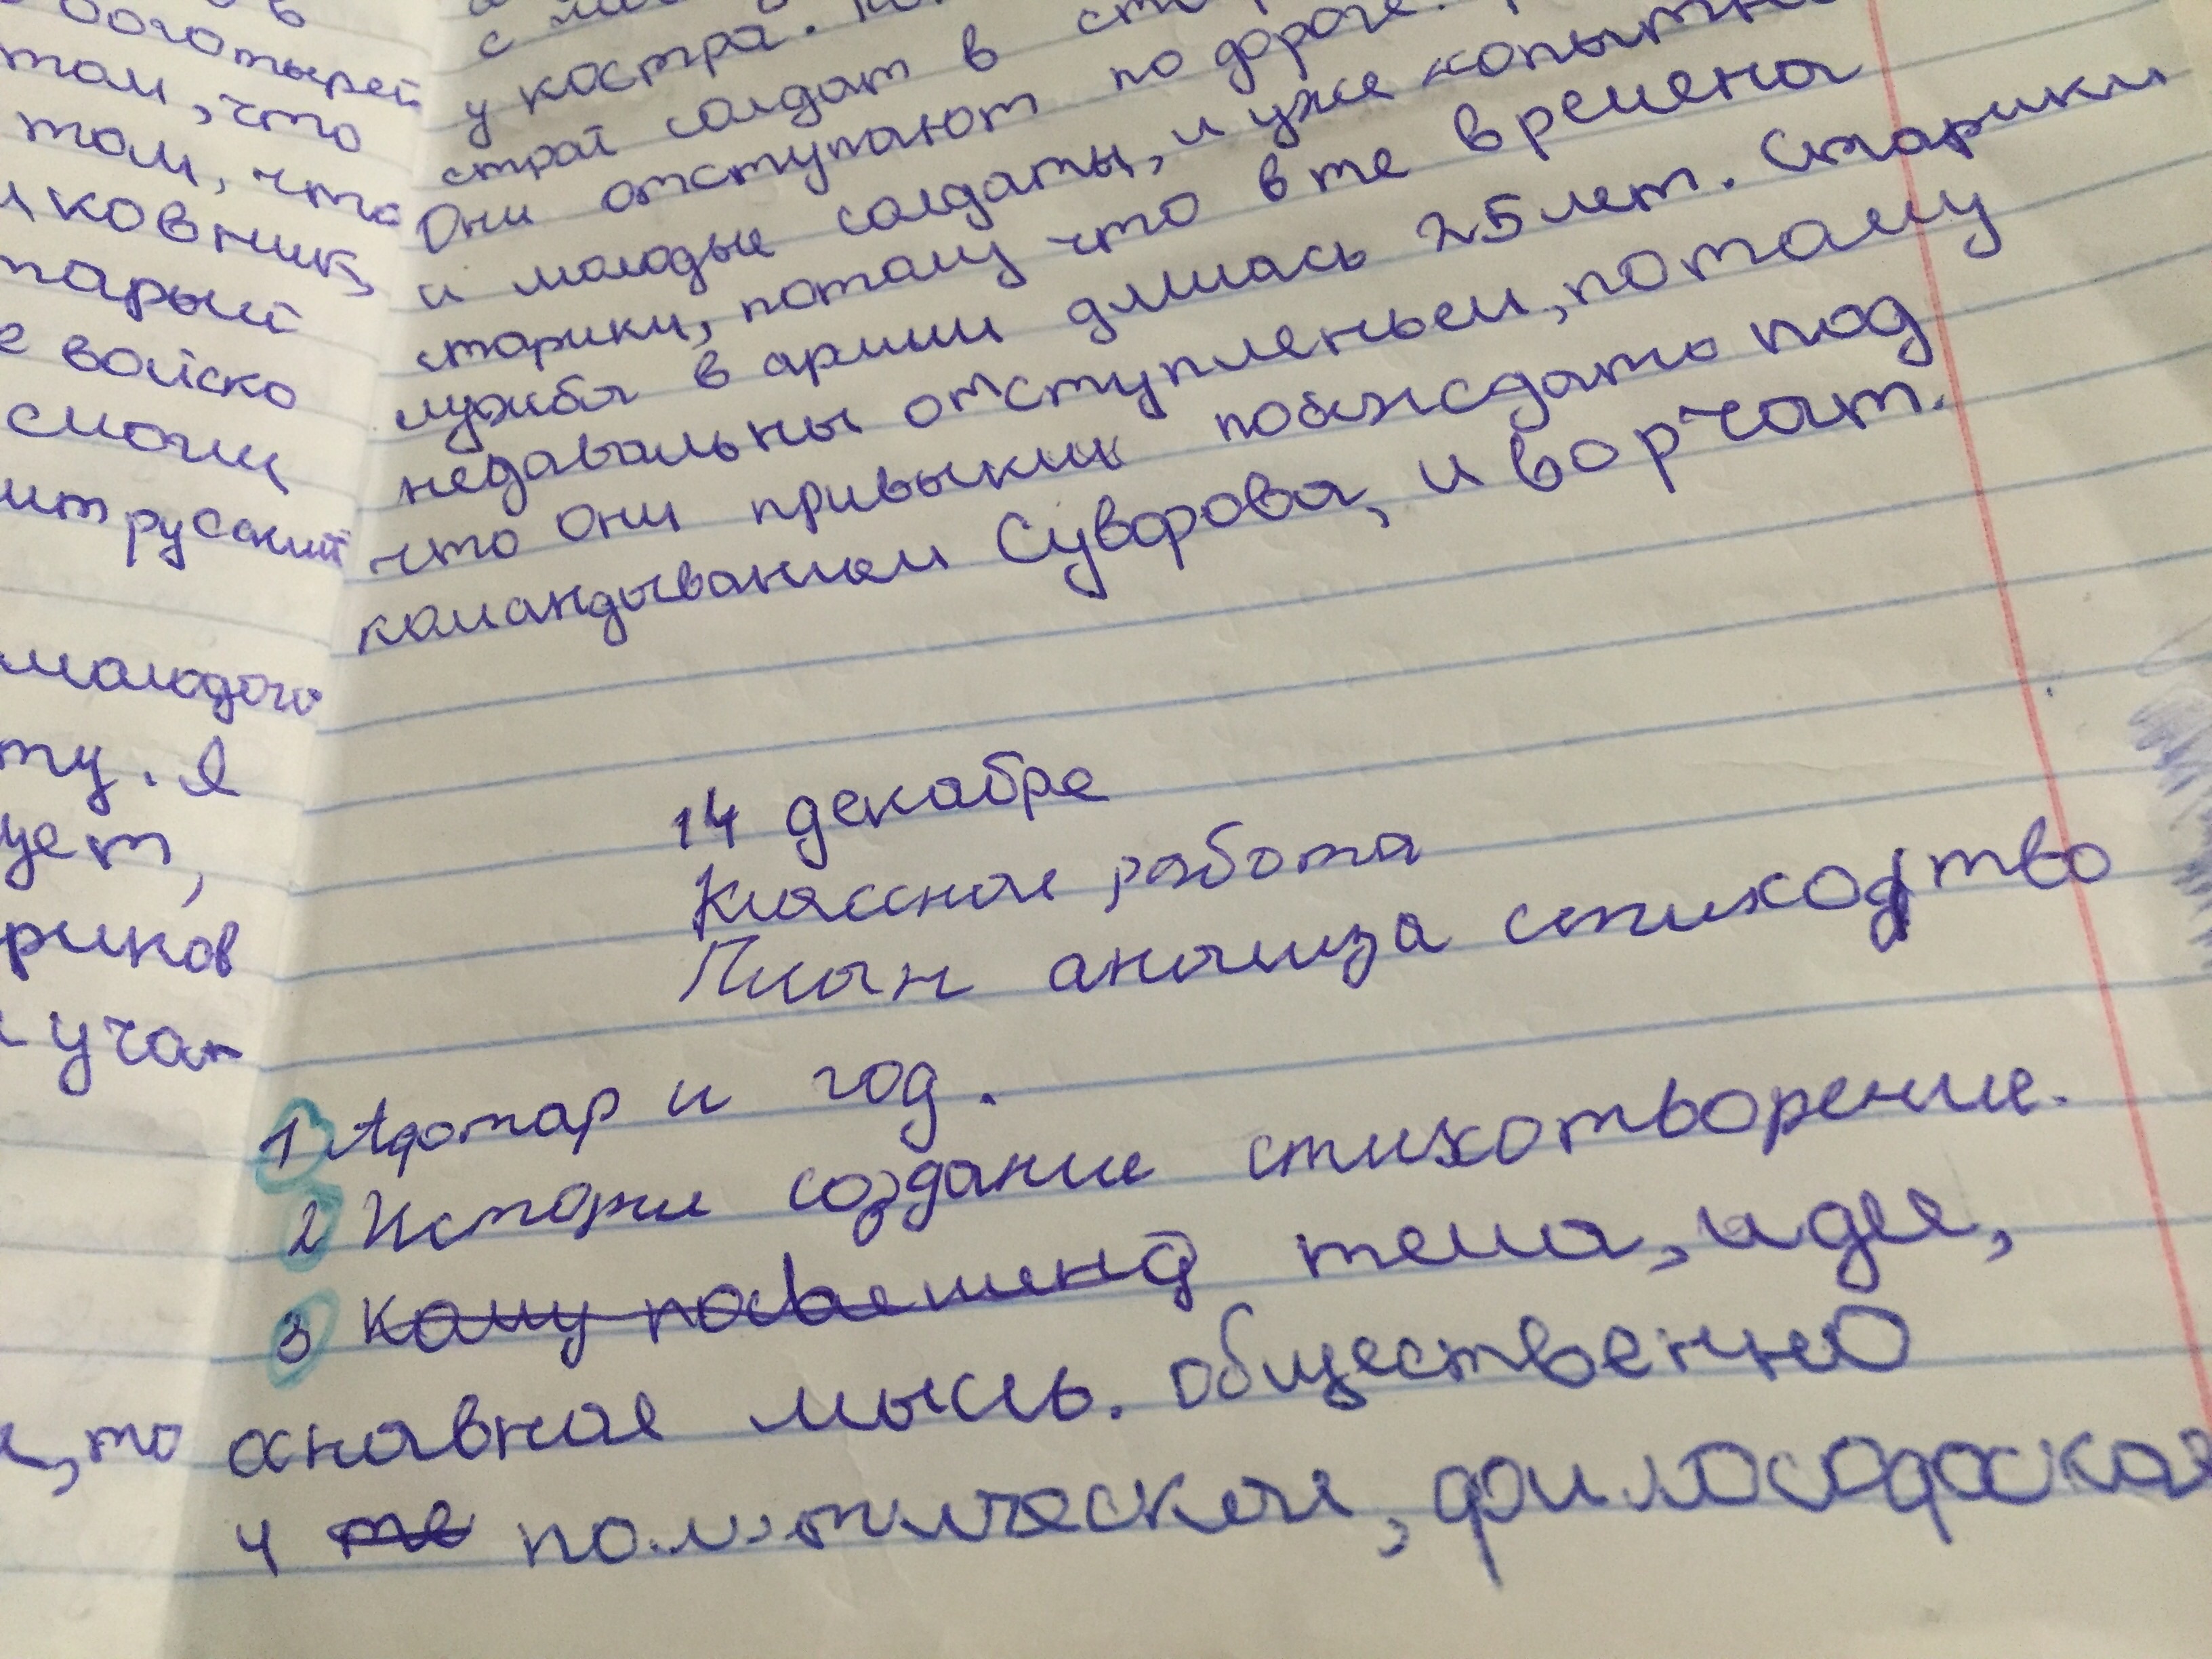 боготырей
том, что
том, что
ковник
тарый
е войско
смогу
ит русский
молодого
ту. Я
ует,
риков
учат
то
с
у костра.
строй солдат в
Они отступают по дороге.
и молодые солдаты, и уже копытн
старики, потому что в те времена
лужба в армии длилась 25 лет. Старики
недавальны отступленьем, потому
что они привыкли побеждать под
командыванием Сувфрова, и ворчат.
14 декабре
Классное работа
План анализа стиходтво
1 Афтар и год.
2 Историе создание стихотворение.
3 Кому посвешено тема, идея,
аснавное мысль. общественно
4 те политическое, философоская